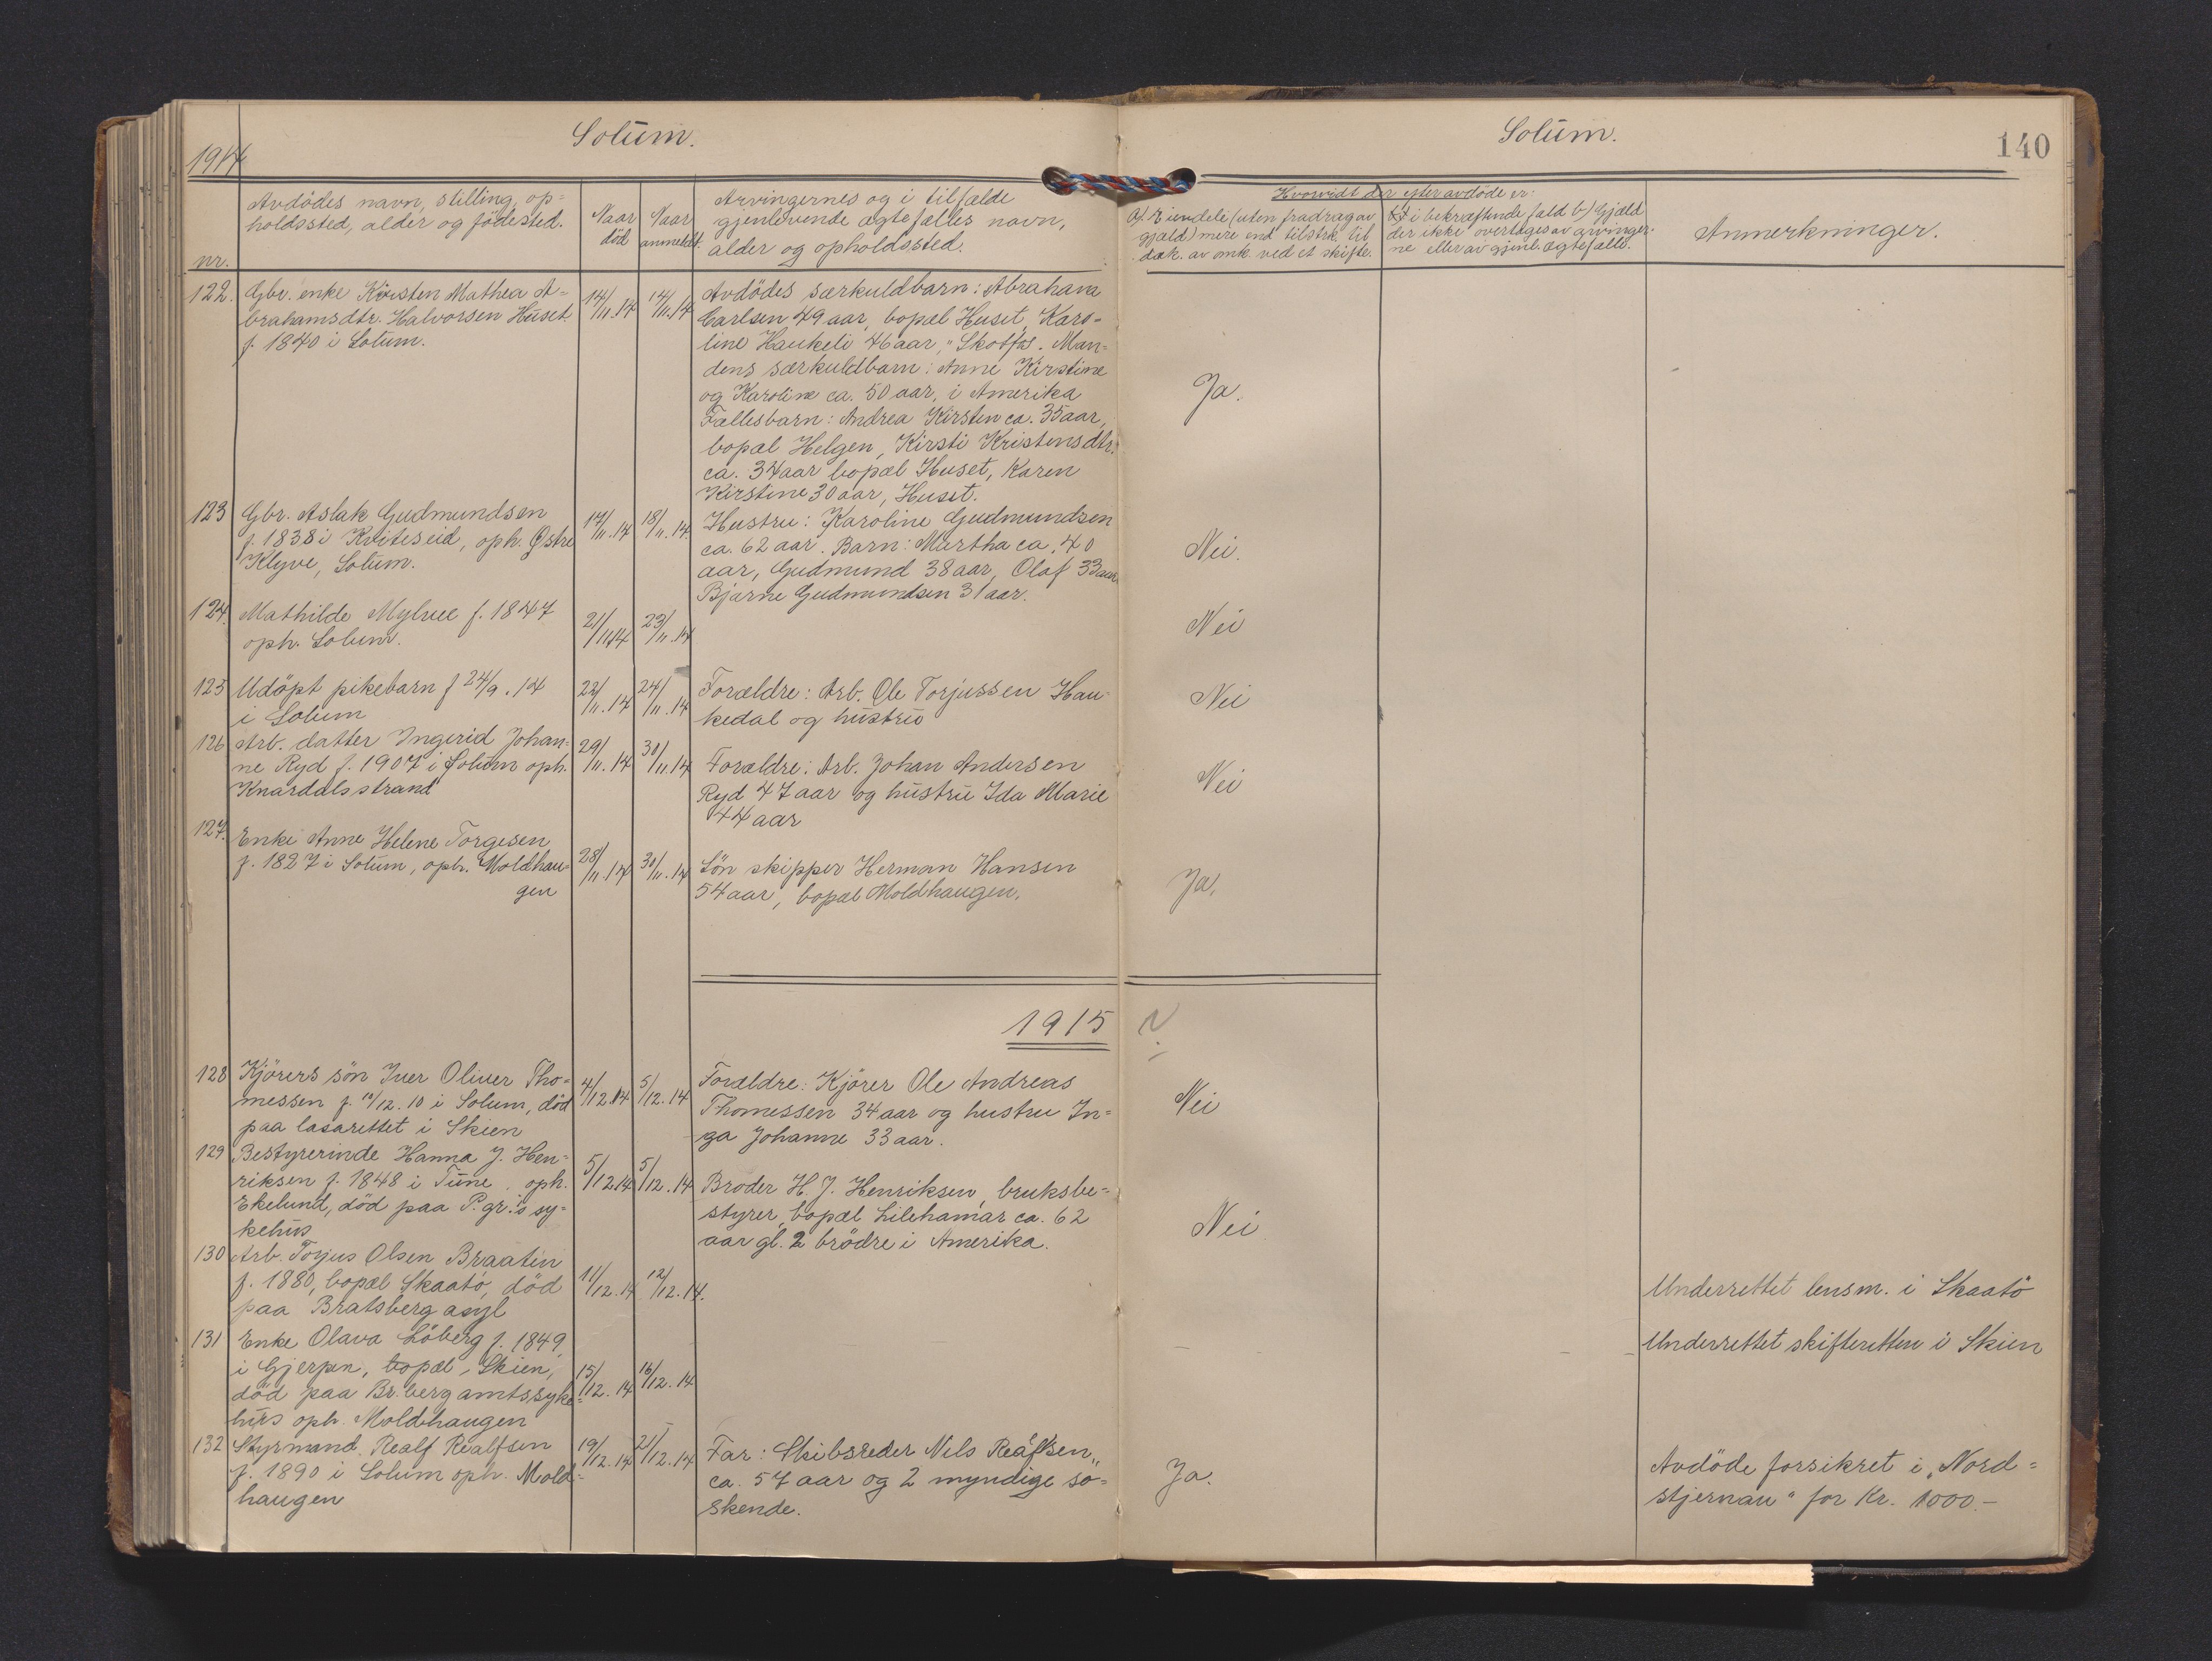 Solum.
Solum.
140
1914
Avdödes navn, stilling, op=
holdssted, alder og födested.
nr.
Naar
död
Naar
anmeldt.
Arvingernes og i tilfælde
gjenlevende ægtefælles navn,
alder og opholdssted.
Hvorvidt der efter avdöde er:
a). Eiendele (uten fradrag av
gjæld) mere end tilstrk. til
dæk. av omk. ved et skifte.
i bekræftende fald b) Gjæld
der ikke overtages av arvinger-
ne eller av gjenl. ægtefælle.
Anmerkninger.
122. Gbr. enke Kirsten Mathea A=
brahamsdtr. Halvorsen Huset
f. 1840 i Solum.
14/11.14
14/11.14
Avdödes særkuldbarn: Abrahava
Carlsen 49 aar, bopæl Huset, Karo=
line Haukeli 46 aar, " Skotfos. Man=
dens særkuldbarn: Anne Kirstine
og Karoline ca. 50 aar, i Amerika
Fællesbarn: Andrea Kirsten ca. 35 aar,
bopæl Helgen, Kirsti Kristensdtr.
ca. 34 aar bopæl Huset, Karen
Kirstine 30 aar, Huset.
Ja.
123 Gbr. Aslak Gudmundsen
f. 1838 i Kviteseid, oph. Østre
Klyve, Solum.
17/11.14
18/11.14
Hustru: Karoline Gudmundsen
ca. 62 aar. Barn: Martha ca. 40
aar, Gudmund 38 aar, Olaf 33 aar
Bjarne Gudmundsen 31 aar.
Nei.
124. Mathilde f. 1847
oph. Solum.
21/11.14
23/11.14
Nei
125 Udöpt pikebarn f 24/9.14
i Solum
23/11.14
24/11.14
Forældre: Arb. Ole Torjussen Hau=
kedal og hustru
Nei
126 Arb. datter Ingerid Johan=
ne Ryd f. 1907 i Solum oph.
Knardalsstrand
29/11.14
30/11.14
Forældre: Arb. Johan Andersen
Ryd 47 aar og hustru Ida Marie
44 aar
Nei
127. Enke Anne Helene Torgesen
f. 1827 i Solum, oph. Moldhau=
gen
28/11.14
30/11.14
Sön skipper Herman Hansen
54 aar, bopæl Moldhaugen.
Ja.
1915
?
128 Kjörers sön Iver Oliver Tho=
messen f. 10/12.10 i Solum, död
paa lasarettet i Skien
4/12.14
5/12.14
Forældre: Kjörer Ole Andreas
Thomessen 34 aar og hustru In=
ga Johanne 33 aar.
Nei
129 Bestyrerinde Hanna J. Hen=
riksen f. 1848 i Tune, oph.
Ekelund, död paa P.gr.'s sy=
kehus
5/12.14
5/12.14
Broder H. J. Henriksen, bruksbe=
styrer, bopæl Lilehamar ca. 62
aar gl. 2 brödre i Amerika.
Nei
130 Arb. Torjus Olsen Braaten
f. 1880, bopæl Skaatö, död
paa Bratsberg asyl
11/12.14
12/12.14.
Underrettet lensm. i Skaatö
131 Enke Olava Löberg f. 1849
i Gjerpen, bopæl Skien,
död paa Br.berg amtssyke=
hus oph. Moldhaugen
15/12.14
16/12.14
Underrettet skifteretten i Skien
132 Styrmand Realf Realfsen
f. 1890 i Solum oph. Mold=
haugen
19/12.14
21/12.14
Far: Skibsreder Nils Realfsen
ca. 57 aar og 2 myndige sö=
skende.
Ja.
Avdöde forsikret i "Nord=
stjernan" for Kr. 1000.-